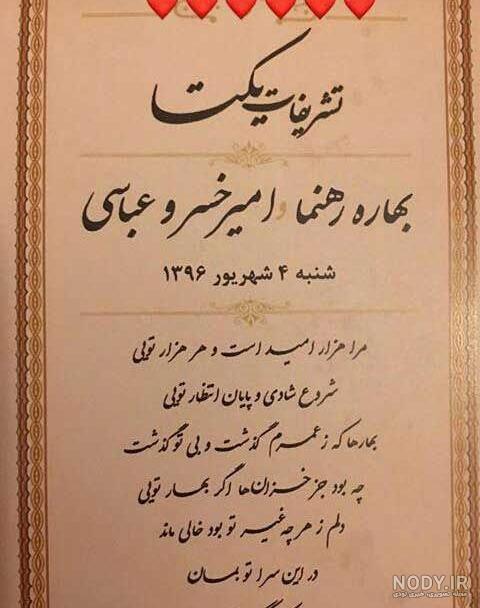 تشریفات یکتا
بهاره رهنما و امیرخسرو عباسی
شنبه ۴ شهریور ۱۳۹۶
مرا هزار امید است و هر هزار تویی
شروع شادی و پایان انتظار تویی
بهارها که ز عمرم گذشت و بی تو گذشت
چه بود جز خزان‌ها اگر بهار تویی
دلم ز هر چه غیر تو بود خالی ماند
در این سرا تو بمان
NODY.IR
مجله تصویری، خبری نودی